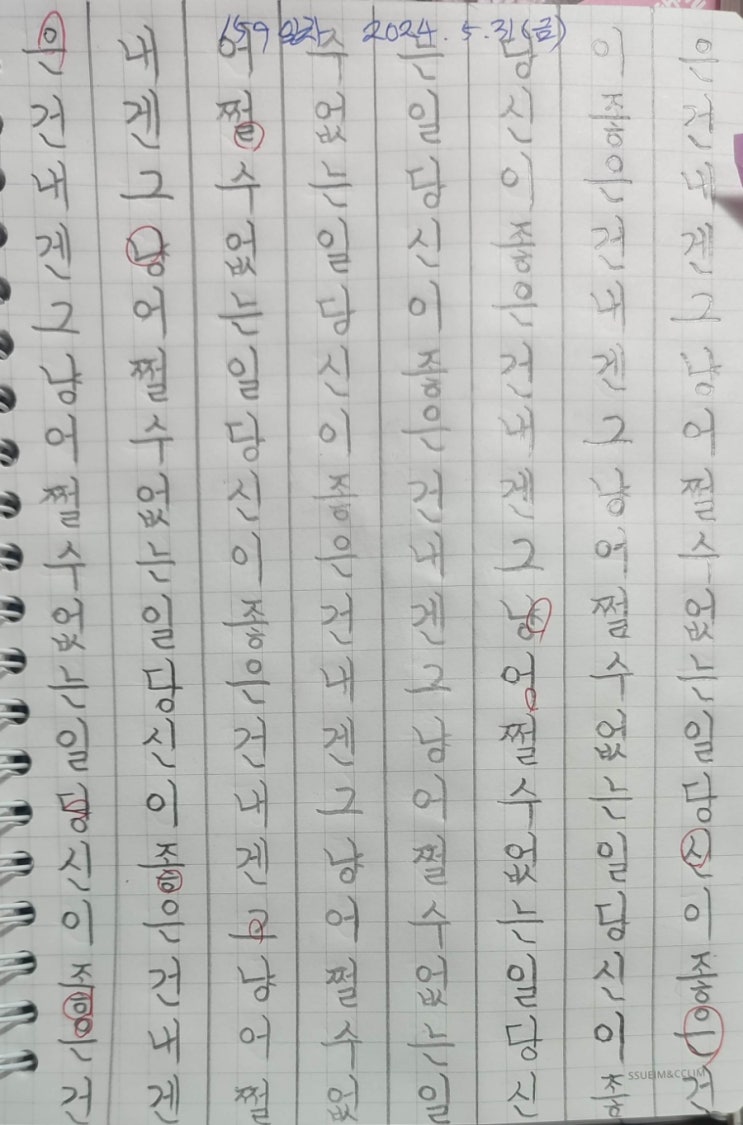 159일차 2024. 5. 31(금)
은건도젠그냥어쩔수없는일당신이좋은건
도젠그냥어쩔수없는일당신이좋은건도젠
어쩔수없는일당신이좋은건도젠그냥어쩔
수없는일당신이좋은건도젠그냥어쩔수없
는일당신이좋은건도젠그냥어쩔수없는일
당신이좋은건도젠그냥어쩔수없는일당신
이좋은건도젠그냥어쩔수없는일당신이좋
은건도젠그냥어쩔수없는일당신이좋은건
SSUEIM&CCLIM